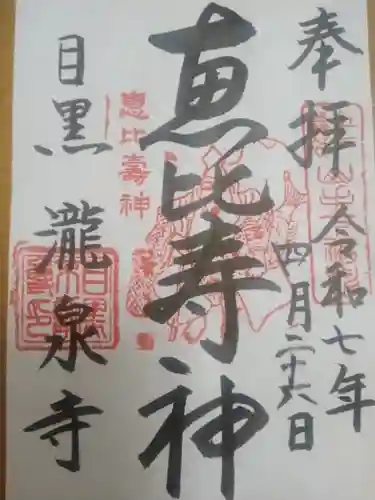 奉拝
令和七年
四月二十六日
恵比寿神
恵比壽神
目黒 瀧泉寺